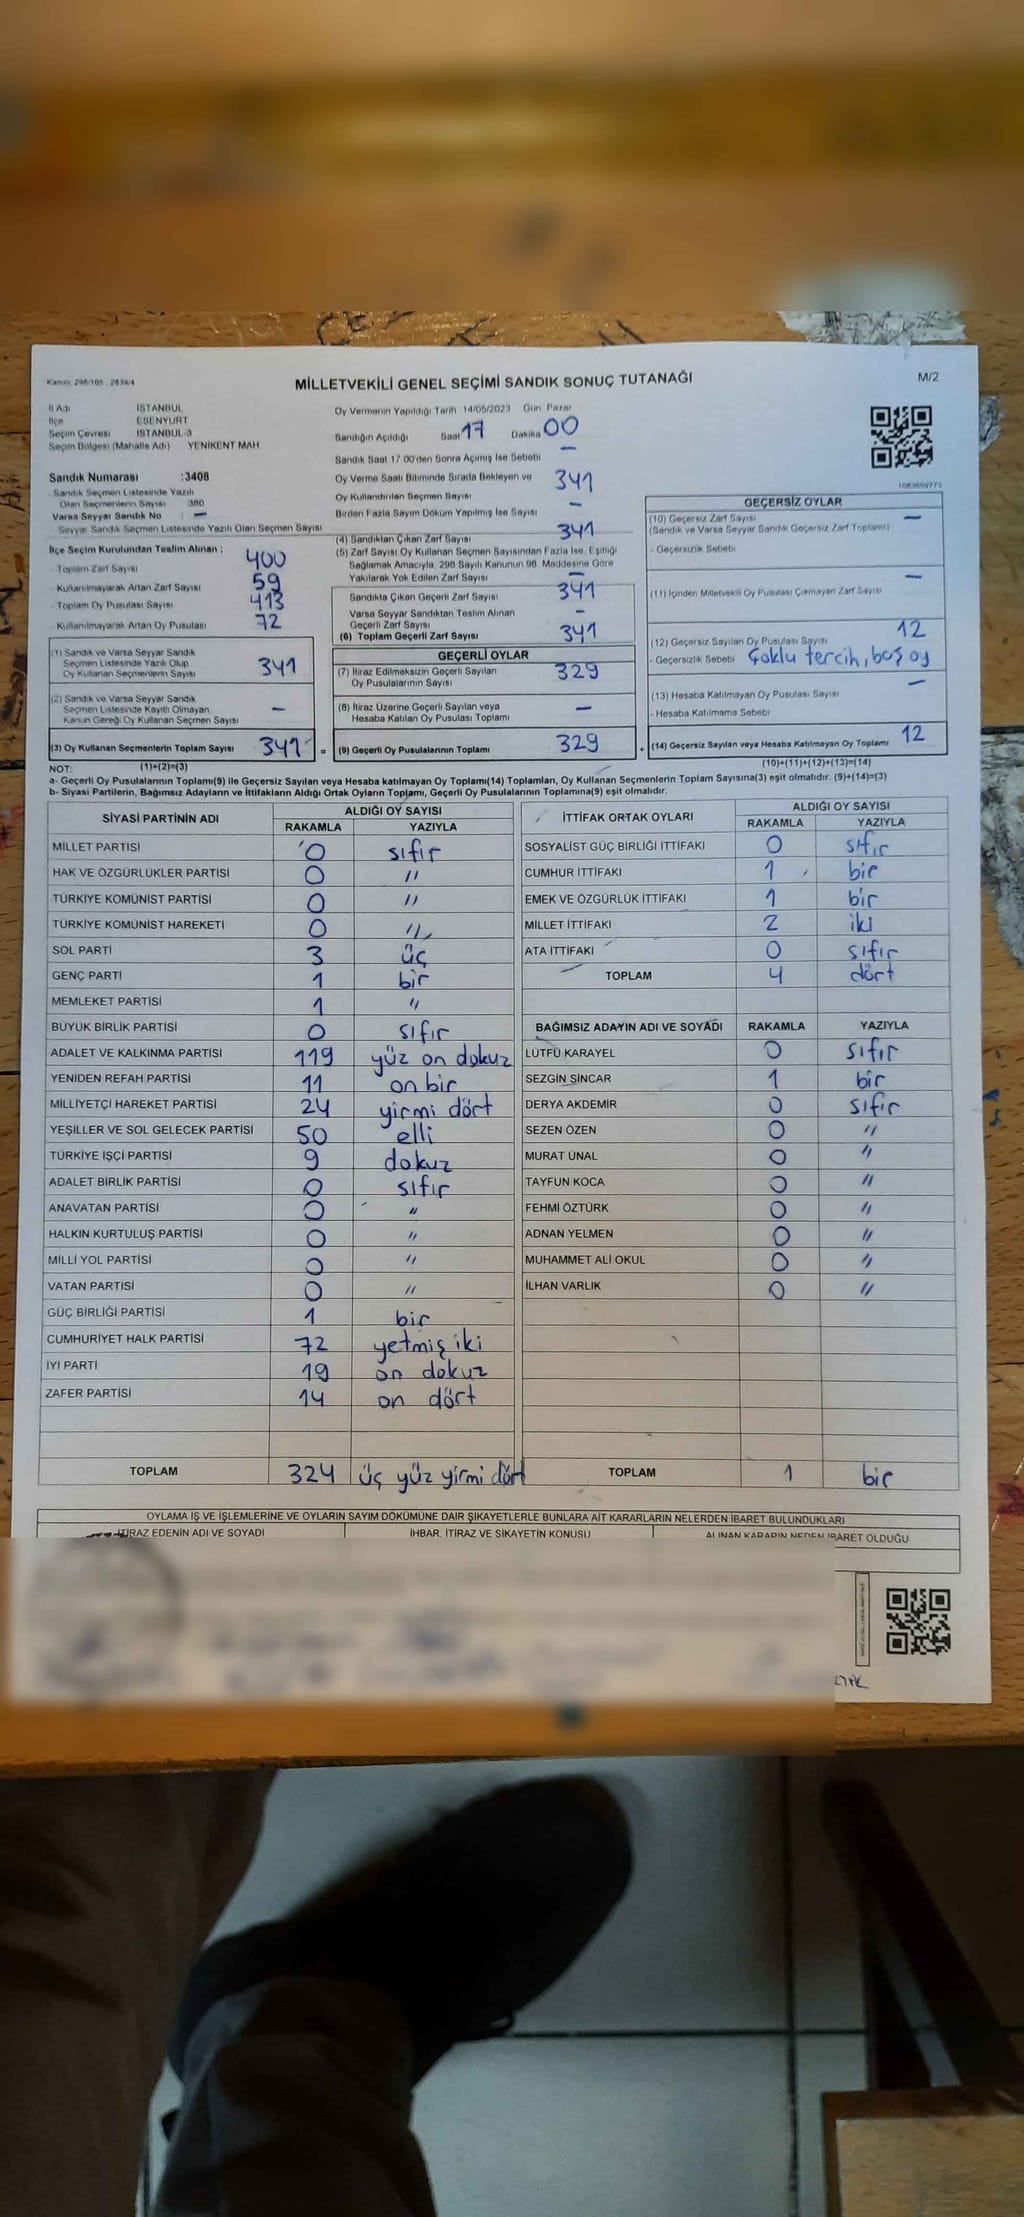 Kanun: 298/105 . 2839/4
MİLLETVEKİLİ GENEL SEÇİMİ SANDIK SONUÇ TUTANAĞI
M/2
İl Adı İSTANBUL
İlçe ESENYURT
Seçim Çevresi İSTANBUL-3
Seçim Bölgesi (Mahalle Adı) YENİKENT MAH
Sandık Numarası :3408
- Sandık Seçmen Listesinde Yazılı
Olan Seçmenlerin Sayısı 380
Varsa Seyyar Sandık No : —
- Seyyar Sandık Seçmen Listesinde Yazılı Olan Seçmen Sayısı
İlçe Seçim Kurulundan Teslim Alınan ;
- Toplam Zarf Sayısı 400
- Kullanılmayarak Artan Zarf Sayısı 59
- Toplam Oy Pusulası Sayısı 413
- Kullanılmayarak Artan Oy Pusulası 72
(1) Sandık ve Varsa Seyyar Sandık
Seçmen Listesinde Yazılı Olup
Oy Kullanan Seçmenlerin Sayısı 341
(2) Sandık ve Varsa Seyyar Sandık
Seçmen Listesinde Kayıtlı Olmayan
Kanun Gereği Oy Kullanan Seçmen Sayısı —
(3) Oy Kullanan Seçmenlerin Toplam Sayısı 341 =
Oy Vermenin Yapıldığı Tarih 14/05/2023 Gün Pazar
Sandığın Açıldığı Saat 17 Dakika 00
Sandık Saat 17:00'den Sonra Açılmış İse Sebebi —
Oy Verme Saati Bitiminde Sırada Bekleyen ve 341
Oy Kullandırılan Seçmen Sayısı
Birden Fazla Sayım Döküm Yapılmış İse Sayısı —
(4) Sandıktan Çıkan Zarf Sayısı 341
(5) Zarf Sayısı Oy Kullanan Seçmen Sayısından Fazla İse, Eşitliği
Sağlamak Amacıyla, 298 Sayılı Kanunun 98. Maddesine Göre
Yakılarak Yok Edilen Zarf Sayısı —
Sandıkta Çıkan Geçerli Zarf Sayısı 341
Varsa Seyyar Sandıktan Teslim Alınan
Geçerli Zarf Sayısı —
(6) Toplam Geçerli Zarf Sayısı 341
GEÇERLİ OYLAR
(7) İtiraz Edilmeksizin Geçerli Sayılan
Oy Pusulalarının Sayısı 329
(8) İtiraz Üzerine Geçerli Sayılan veya
Hesaba Katılan Oy Pusulası Toplamı —
(9) Geçerli Oy Pusulalarının Toplamı 329 +
GEÇERSİZ OYLAR
(10) Geçersiz Zarf Sayısı —
(Sandık ve Varsa Seyyar Sandık Geçersiz Zarf Toplamı)
- Geçersizlik Sebebi
(11) İçinden Milletvekili Oy Pusulası Çıkmayan Zarf Sayısı —
(12) Geçersiz Sayılan Oy Pusulası Sayısı 12
- Geçersizlik Sebebi Çoklu tercih, boş oy
(13) Hesaba Katılmayan Oy Pusulası Sayısı —
- Hesaba Katılmama Sebebi
(14) Geçersiz Sayılan veya Hesaba Katılmayan Oy Toplamı 12
NOT: (1)+(2)=(3) (10)+(11)+(12)+(13)=(14)
a- Geçerli Oy Pusulalarının Toplamı(9) ile Geçersiz Sayılan veya Hesaba katılmayan Oy Toplamı(14) Toplamları, Oy Kullanan Seçmenlerin Toplam Sayısına(3) eşit olmalıdır. (9)+(14)=(3)
b- Siyasi Partilerin, Bağımsız Adayların ve İttifakların Aldığı Ortak Oyların Toplamı, Geçerli Oy Pusulalarının Toplamına(9) eşit olmalıdır.
SİYASİ PARTİNİN ADI ALDIĞI OY SAYISI
RAKAMLA YAZIYLA
MİLLET PARTİSİ 0 sıfır
HAK VE ÖZGÜRLÜKLER PARTİSİ 0 "
TÜRKİYE KOMÜNİST PARTİSİ 0 "
TÜRKİYE KOMÜNİST HAREKETİ 0 "
SOL PARTİ 3 üç
GENÇ PARTİ 1 bir
MEMLEKET PARTİSİ 1 "
BÜYÜK BİRLİK PARTİSİ 0 sıfır
ADALET VE KALKINMA PARTİSİ 119 yüz on dokuz
YENİDEN REFAH PARTİSİ 11 on bir
MİLLİYETÇİ HAREKET PARTİSİ 24 yirmi dört
YEŞİLLER VE SOL GELECEK PARTİSİ 50 elli
TÜRKİYE İŞÇİ PARTİSİ 9 dokuz
ADALET BİRLİK PARTİSİ 0 sıfır
ANAVATAN PARTİSİ 0 "
HALKIN KURTULUŞ PARTİSİ 0 "
MİLLİ YOL PARTİSİ 0 "
VATAN PARTİSİ 0 "
GÜÇ BİRLİĞİ PARTİSİ 1 bir
CUMHURİYET HALK PARTİSİ 72 yetmiş iki
İYİ PARTİ 19 on dokuz
ZAFER PARTİSİ 14 on dört
TOPLAM 324 üç yüz yirmi dört
İTTİFAK ORTAK OYLARI ALDIĞI OY SAYISI
RAKAMLA YAZIYLA
SOSYALİST GÜÇ BİRLİĞİ İTTİFAKI 0 sıfır
CUMHUR İTTİFAKI 1 bir
EMEK VE ÖZGÜRLÜK İTTİFAKI 1 bir
MİLLET İTTİFAKI 2 iki
ATA İTTİFAKI 0 sıfır
TOPLAM 4 dört
BAĞIMSIZ ADAYIN ADI VE SOYADI RAKAMLA YAZIYLA
LÜTFÜ KARAYEL 0 sıfır
SEZGİN SİNCAR 1 bir
DERYA AKDEMİR 0 sıfır
SEZEN ÖZEN 0 "
MURAT ÜNAL 0 "
TAYFUN KOCA 0 "
FEHMİ ÖZTÜRK 0 "
ADNAN YELMEN 0 "
MUHAMMET ALİ OKUL 0 "
İLHAN VARLIK 0 "
TOPLAM 1 bir
OYLAMA İŞ VE İŞLEMLERİNE VE OYLARIN SAYIM DÖKÜMÜNE DAİR ŞİKAYETLERLE BUNLARA AİT KARARLARIN NELERDEN İBARET BULUNDUKLARI
İTİRAZ EDENİN ADI VE SOYADI İHBAR, İTİRAZ VE ŞİKAYETİN KONUSU ALINAN KARARIN NEDEN İBARET OLDUĞU